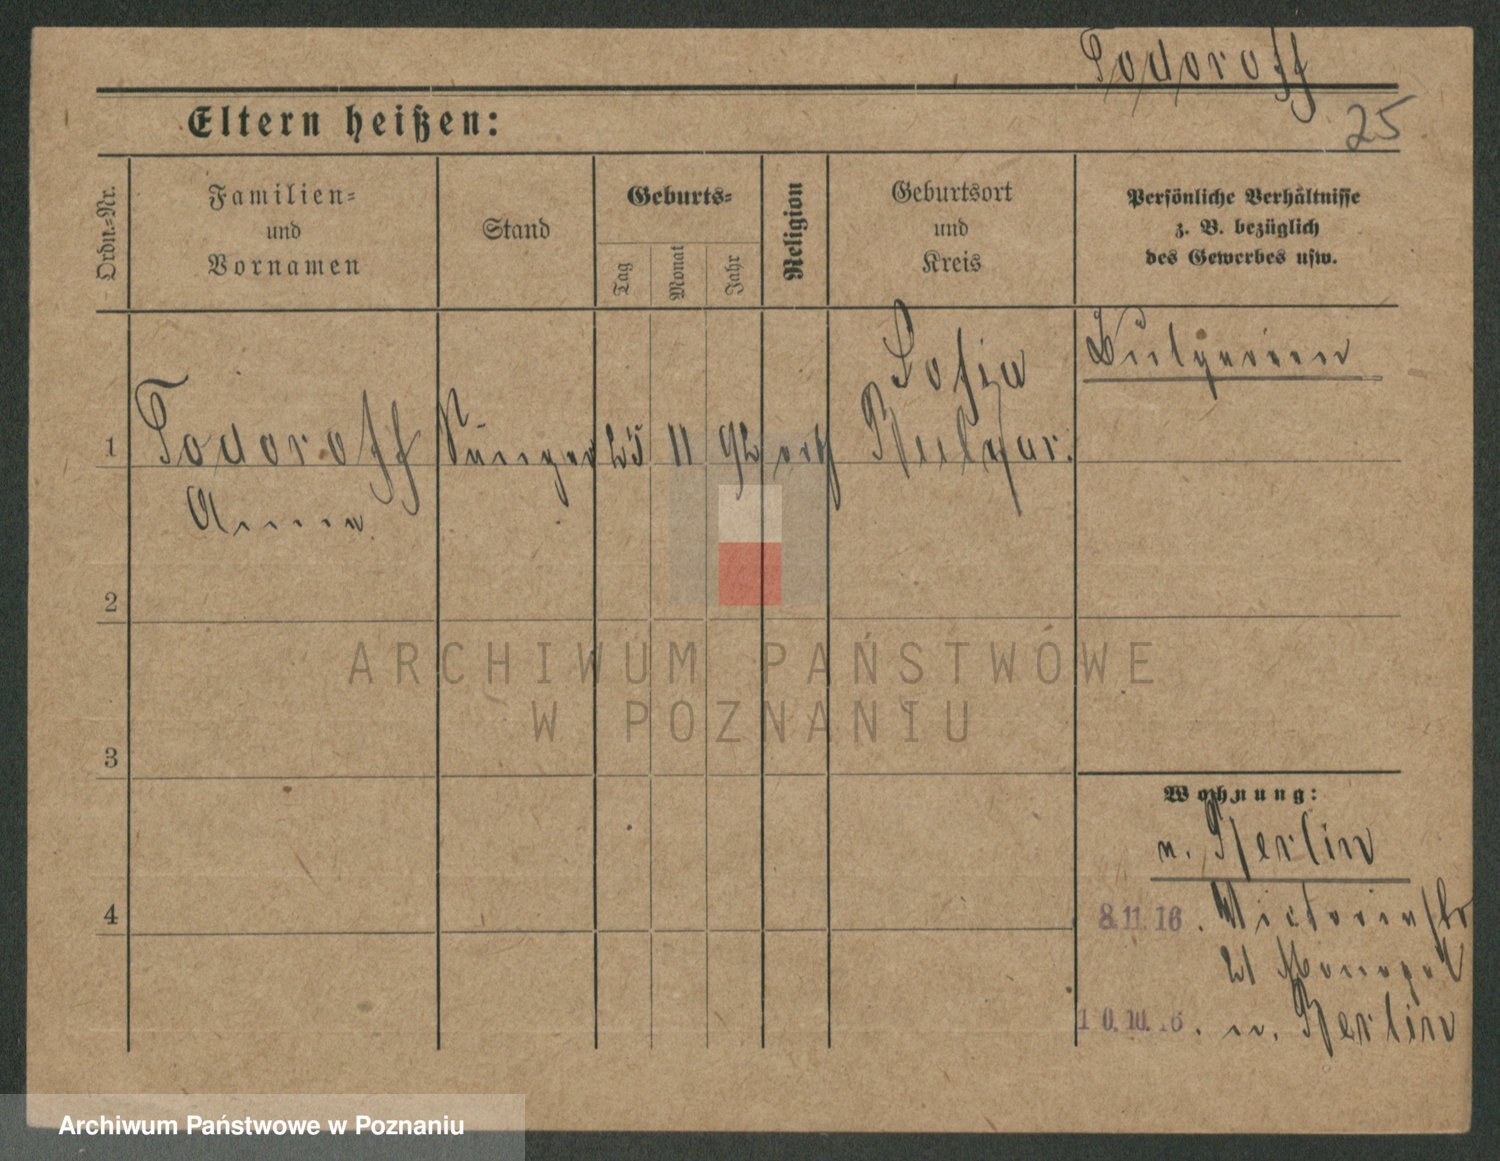 Todoroff
25
Eltern heißen:
Ordn.-Nr.
Familien-
und
Vornamen
Stand
Geburts-
Tag
Monat
Jahr
Religion
Geburtsort
und
Kreis
Persönliche Verhältnisse
z. B. bezüglich
des Gewerbes usw.
Sofia
Bulgarien
1 Todoroff Sänger 25 11 92 orth Bulgar.
Anna
2
ARCHIWUM PAŃSTWOWE
W POZNANIU
3
Wohnung:
n. Berlin
4
8.11.16. Victoriastr
21 Monopol
10.10.16. n. Berlin
Archiwum Państwowe w Poznaniu